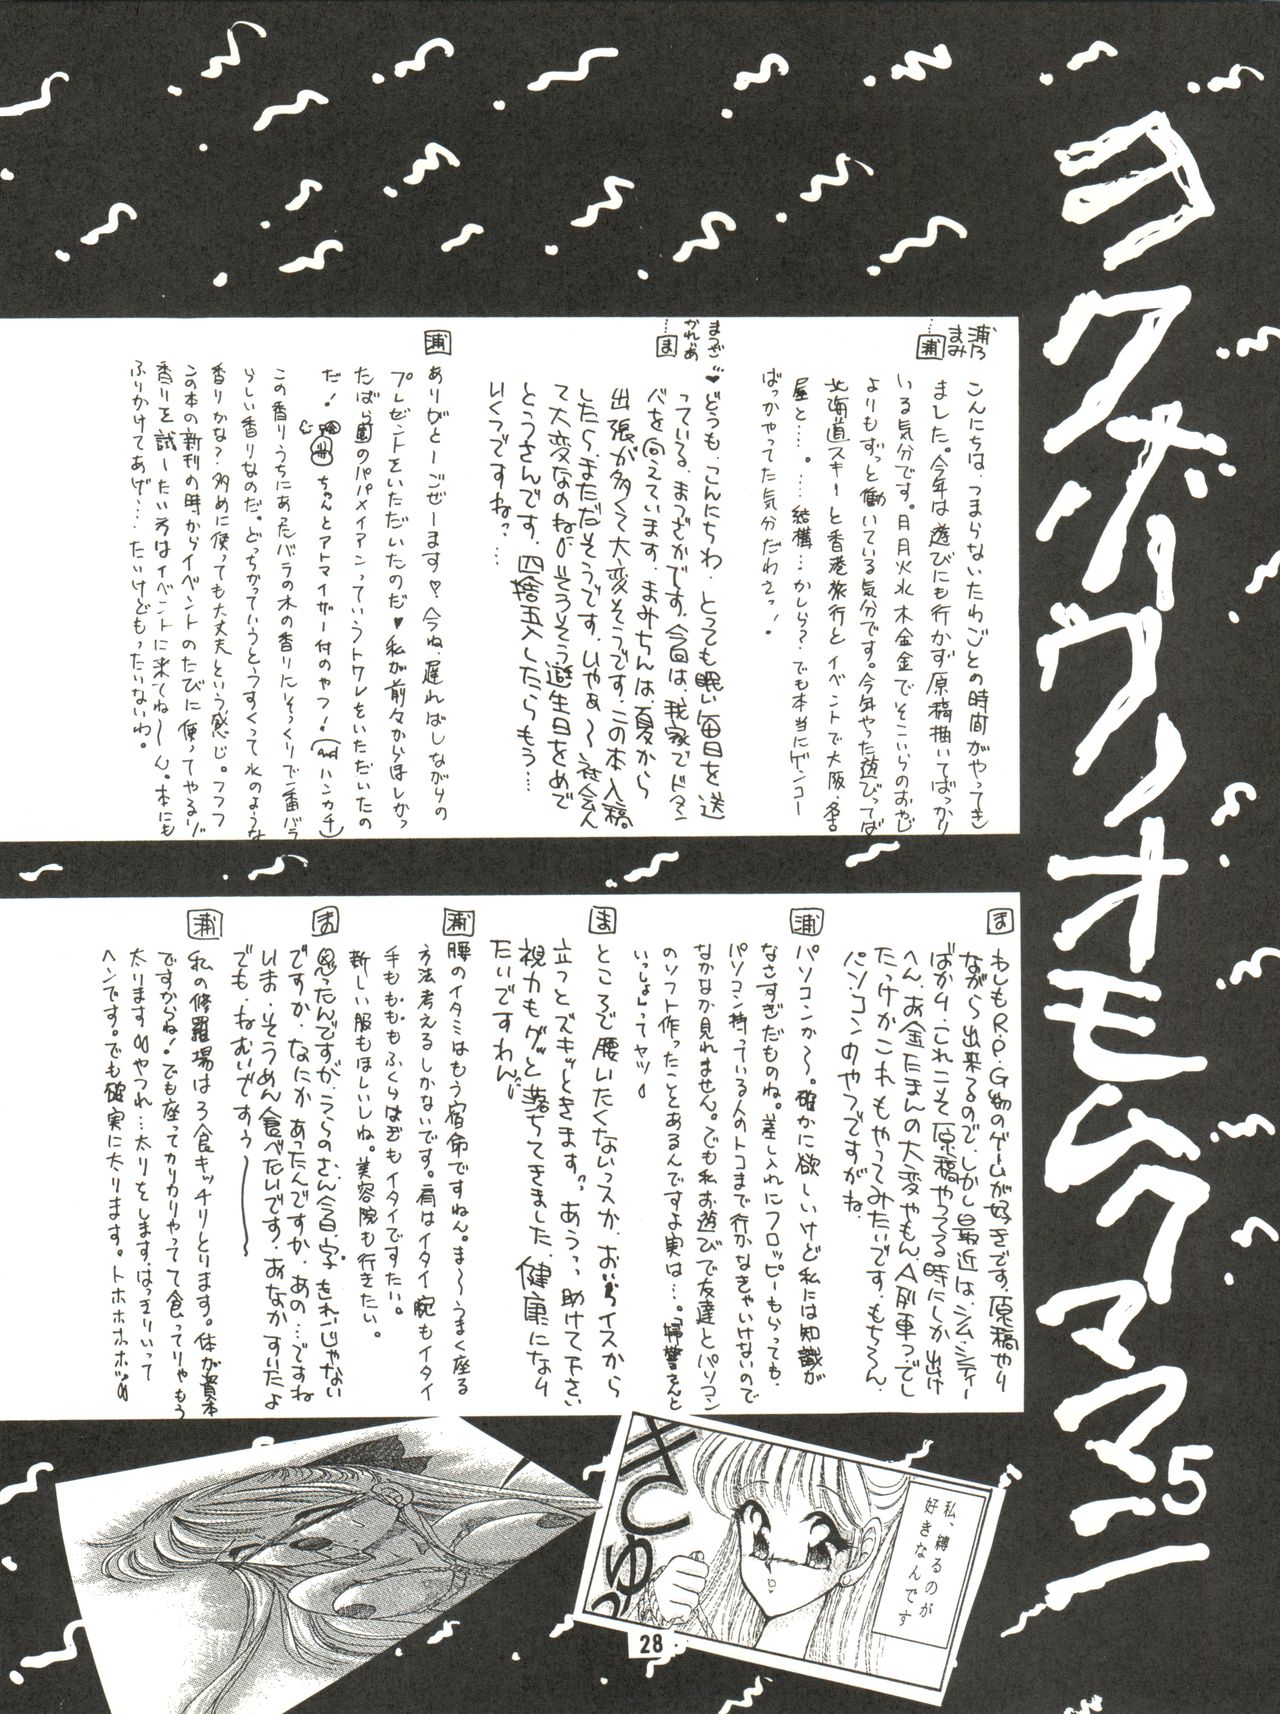 ヨクボウノオモムクママ 5
浦乃まみ…浦
こんにちは、つまらないたわごとの時間がやってき
ました。今年は遊びにも行かず原稿描いてばっかり
いる気分です。月月火水木金金でそこいらのおやじ
よりもずっと働いている気分です。今年やった遊びってば
北海道スキーと香港旅行とイベントで大阪、名古
屋と…。…結構…かしら?でも本当にゲンコー
ばっかやってた気分だわさっ!
ま
♥どうも、こんにちわ、とっても眠い毎日を送
っている、まつざかです。今回は、我家でドタン
バを向えています。まみちんは、夏から
出張が多くて大変そうです。この本入稿
したらまただそうです。いやぁ〜社会人
て大変なのね。そうそう誕生日をめで
とうさんです。四捨五入したらもう…
いくつですねっ…
浦
ありがとーごぜーます♡今ね、遅ればしながらの
プレゼントをいただいたのだ♥私が前々からほしかっ
たばら園のパパメイアンっていうトワレをいただいたの
だ! ちゃんとアトマイザー付のやつ!(andハンカチ)
この香りうちにあったバラの木の香りにそっくりで一番バラ
らしい香りなのだ。どっちかっていうとうすくって水のような
香りかな?多めに使っても大丈夫という感じ。フフフ
この本の新刊の時からイベントのたびに使ってやるゾ
香りを試したい方はイベントに来てね〜ん。本にも
ふりかけてあげ…たいけどもったいないわ。
ま
わしもR.P.G物のゲームが好きです。原稿やり
ながら出来るので、しかし最近は、シムシティー
ばかり、これこそ原稿やってる時にしか出け
へん、お金たまんの大変やもん、A列車つでし
たっけかこれもやってみたいです。もちろん、
パソコンのやつですがね、
浦
パソコンか〜。確かに欲しいけど私には知識が
なさすぎだものね。差し入れにフロッピーもらっても、
パソコン持っている人のトコまで行かなきゃいけないので
なかなか見れません。でも私お遊びで友達とパソコン
のソフト作ったことあるんですよ実は…。「婦警さんと
いっしょ」ってヤツ
ま
ところで腰いたくないっスか、おいらイスから
立つとズキッときます。あうっっ助けて下さい
視力もグッと落ちてきました、健康になり
たいですわん
浦
腰のイタミはもう宿命ですねん。ま〜うまく座る
方法考えるしかないです。肩はイタイ腕もイタイ
手もももももふくらはぎもイタイですたい。
新しい服もほしいしね。美容院も行きたい。
ま
思ったんですが、うらのさん今日、字、きれいじゃない
ですか、なにかあったんですか、あの…ですね
いま、そうめん食べたいです、おなかすいたよ
でも、ねむいですぅ〜
浦
私の修羅場は3食キッチリとります。体が資本
ですからね!でも座ってカリカリやってて食ってりゃもう
太ります やつれ…太りをします。はっきりいって
ヘンです。でも確実に太ります。トホホホホッ
私、縛るのが
好きなんです
28